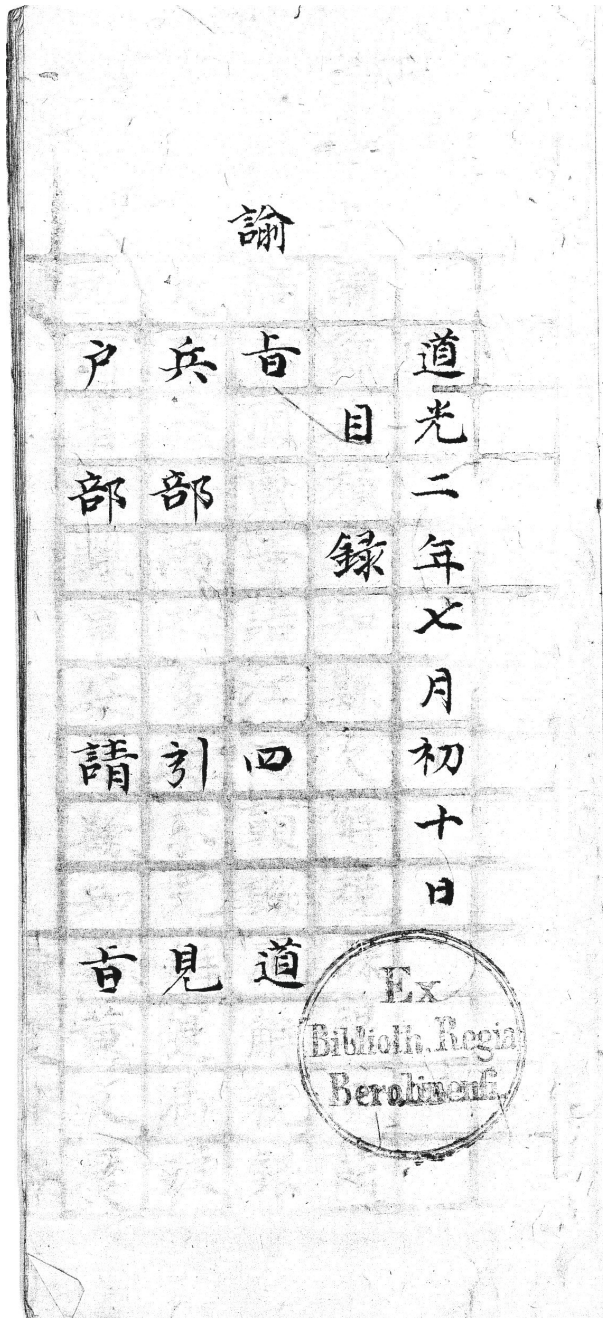 道光二年七月初十日
目錄
諭旨四道
兵部引見
户部請旨
Ex
Biblioth. Regia
Berolinensi.